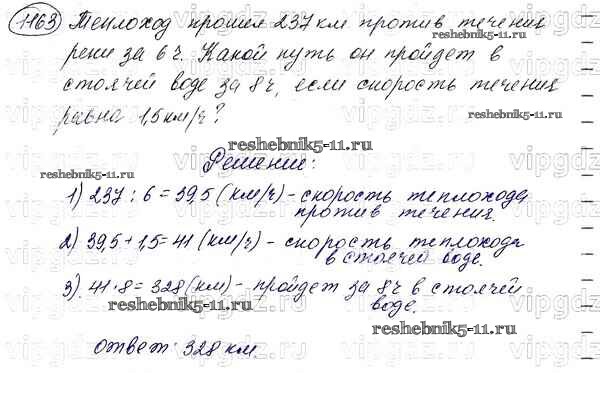 1163 Теплоход прошел 237 км против течения
реки за 6 ч. Какой путь он пройдет в
стоячей воде за 8 ч, если скорость течения
равна 1,5 км/ч?
reshebnik5-11.ru
reshebnik5-11.ru
reshebnik5-11.ru
Решение:
reshebnik5-11.ru
1) 237 : 6 = 39,5 (км/ч) - скорость теплохода
против течения.
2) 39,5 + 1,5 = 41 (км/ч) - скорость теплохода
в стоячей воде.
3) 41 · 8 = 328 (км) - пройдет за 8 ч в стоячей
воде.
reshebnik5-11.ru
reshebnik5-11.ru
Ответ: 328 км.